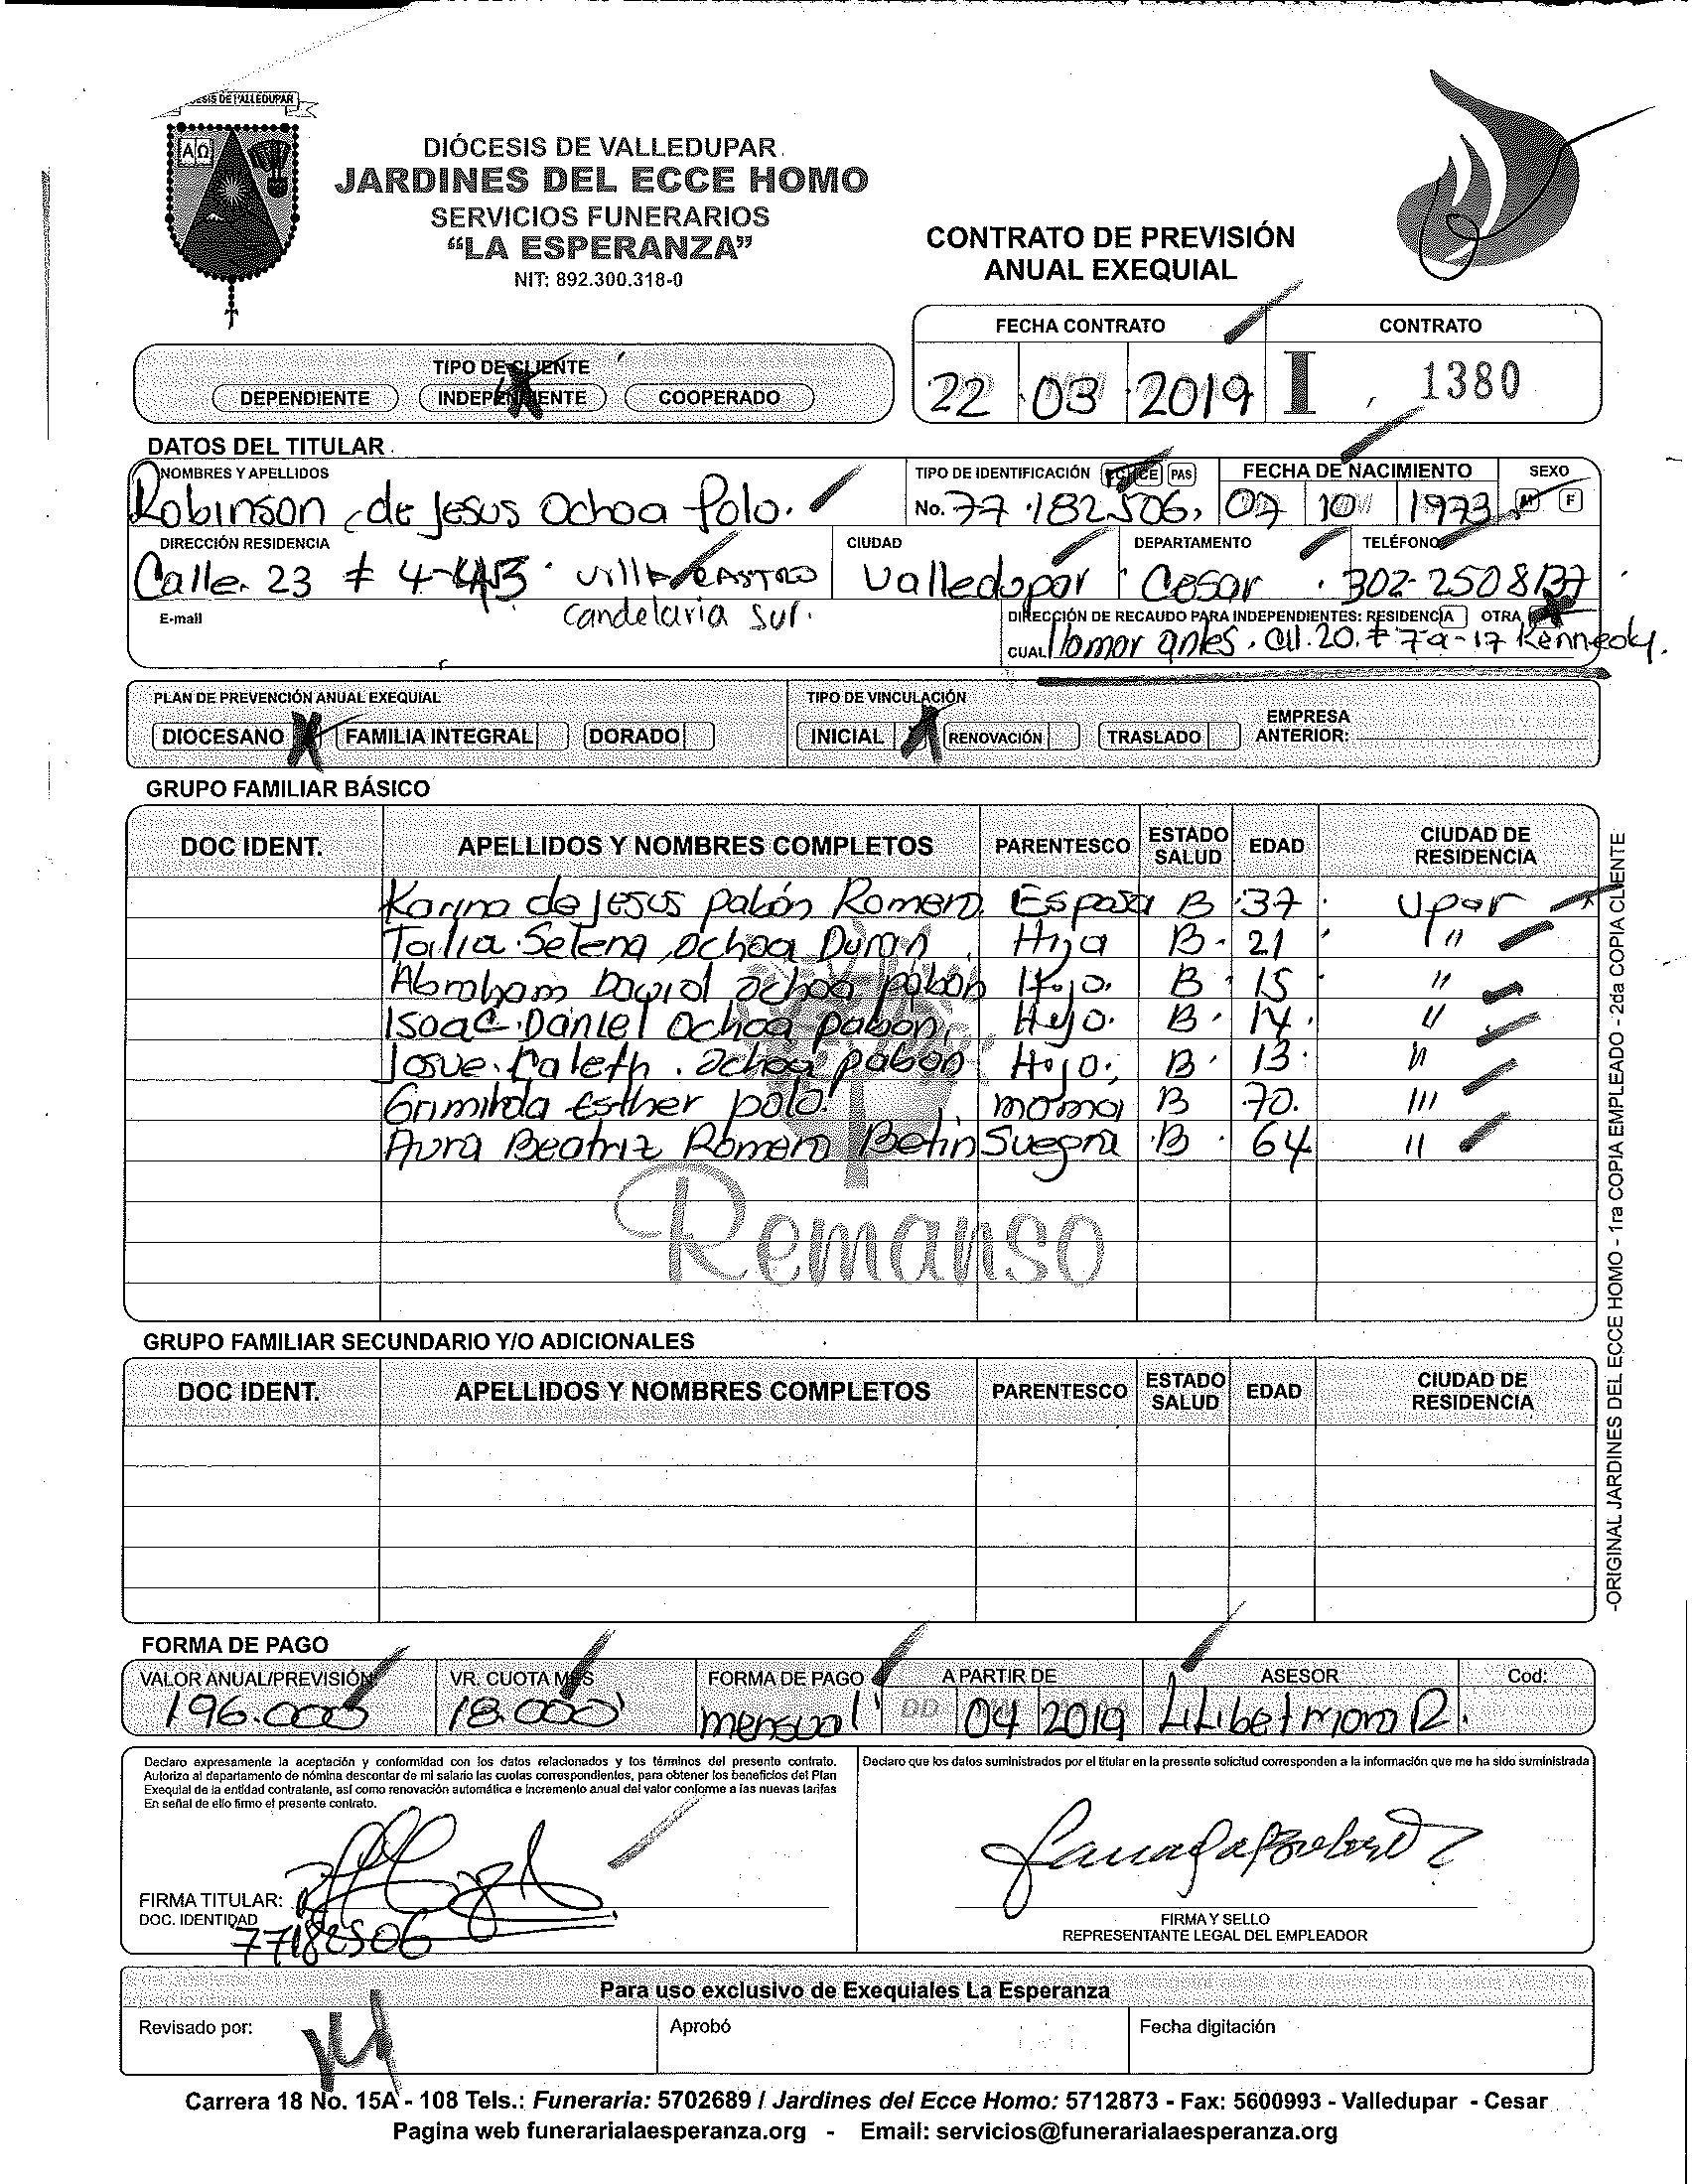 DIÓCESIS DE VALLEDUPAR
ΑΩ
DIÓCESIS DE VALLEDUPAR
JARDINES DEL ECCE HOMO
SERVICIOS FUNERARIOS
“LA ESPERANZA”
NIT: 892.300.318-0
CONTRATO DE PREVISIÓN
ANUAL EXEQUIAL
FECHA CONTRATO CONTRATO
22 03 2019 I 1380
TIPO DE CLIENTE
DEPENDIENTE INDEPENDIENTE COOPERADO
DATOS DEL TITULAR
NOMBRES Y APELLIDOS TIPO DE IDENTIFICACIÓN CE PAS FECHA DE NACIMIENTO SEXO
Robinson de Jesus Ochoa Polo. No. 77.182506, 07 10 1973 M F
DIRECCIÓN RESIDENCIA CIUDAD DEPARTAMENTO TELÉFONO
Calle. 23 # 4-43 villa CASTRO Valledupar Cesar 302-2508137
candelaria sur.
E-mail DIRECCIÓN DE RECAUDO PARA INDEPENDIENTES: RESIDENCIA OTRA
CUAL llamar antes. cll. 20. # 7a-17 Kennedy.
PLAN DE PREVENCIÓN ANUAL EXEQUIAL TIPO DE VINCULACIÓN
DIOCESANO FAMILIA INTEGRAL DORADO INICIAL RENOVACIÓN TRASLADO EMPRESA ANTERIOR:
GRUPO FAMILIAR BÁSICO
DOC IDENT. APELLIDOS Y NOMBRES COMPLETOS PARENTESCO ESTADO SALUD EDAD CIUDAD DE RESIDENCIA
Karina de Jesus pabón Romero Esposa B 37 Upar
Talia Selena ochoa Duran Hija B 21 "
Abraham David ochoa pabon Hijo. B 15 "
Isaac Daniel Ochoa pabon, Hijo. B 14. "
Josue Caleth. ochoa pabon Hijo. B 13 "
Grimilda Esther polo. mama B 70. "
Aura Beatriz Romero Betin Suegra B 64 "
Remanso
GRUPO FAMILIAR SECUNDARIO Y/O ADICIONALES
DOC IDENT. APELLIDOS Y NOMBRES COMPLETOS PARENTESCO ESTADO SALUD EDAD CIUDAD DE RESIDENCIA
-ORIGINAL JARDINES DEL ECCE HOMO - 1ra COPIA EMPLEADO - 2da COPIA CLIENTE
FORMA DE PAGO
VALOR ANUAL/PREVISIÓN VR. CUOTA MES FORMA DE PAGO A PARTIR DE ASESOR Cod:
196.000 18.000 mensual DD 04 2019 Lilibet mora R.
Declaro expresamente la aceptación y conformidad con los datos relacionados y los términos del presente contrato.
Autorizo al departamento de nómina descontar de mi salario las cuotas correspondientes, para obtener los beneficios del Plan
Exequial de la entidad contratante, así como renovación automática e incremento anual del valor conforme a las nuevas tarifas
En señal de ello firmo el presente contrato.
Declaro que los datos suministrados por el titular en la presente solicitud corresponden a la información que me ha sido suministrada
FIRMA TITULAR:
DOC. IDENTIDAD
77182506
FIRMA Y SELLO
REPRESENTANTE LEGAL DEL EMPLEADOR
Para uso exclusivo de Exequiales La Esperanza
Revisado por: Aprobó Fecha digitación
Carrera 18 No. 15A - 108 Tels.: Funeraria: 5702689 / Jardines del Ecce Homo: 5712873 - Fax: 5600993 - Valledupar - Cesar
Pagina web funerarialaesperanza.org - Email: servicios@funerarialaesperanza.org